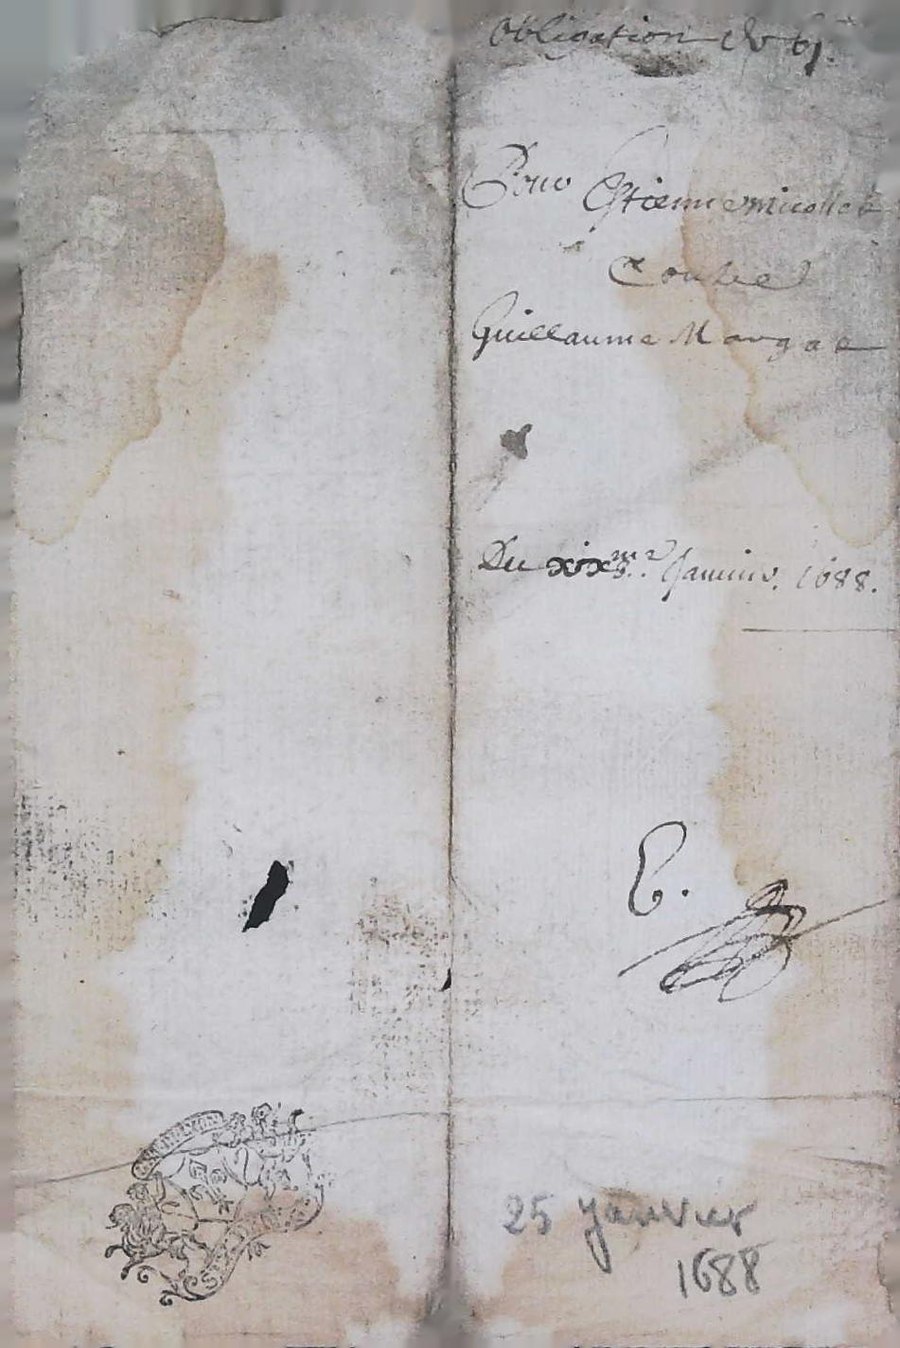 Obligation de 6
Pour Estienne Micollet
Contre
Guillaume Margae
Du xixme Janvier. 1688.
25 janvier
1688